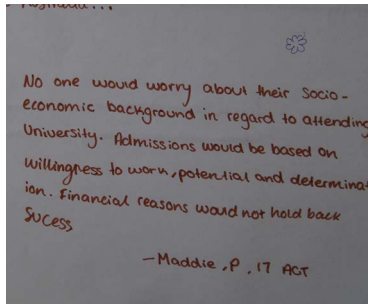 No one would worry about their socio-
economic background in regard to attending
University. Admissions would be based on
willingness to work, potential and determinat
ion. Financial reasons would not hold back
sucess
- Maddie, P, 17 ACT